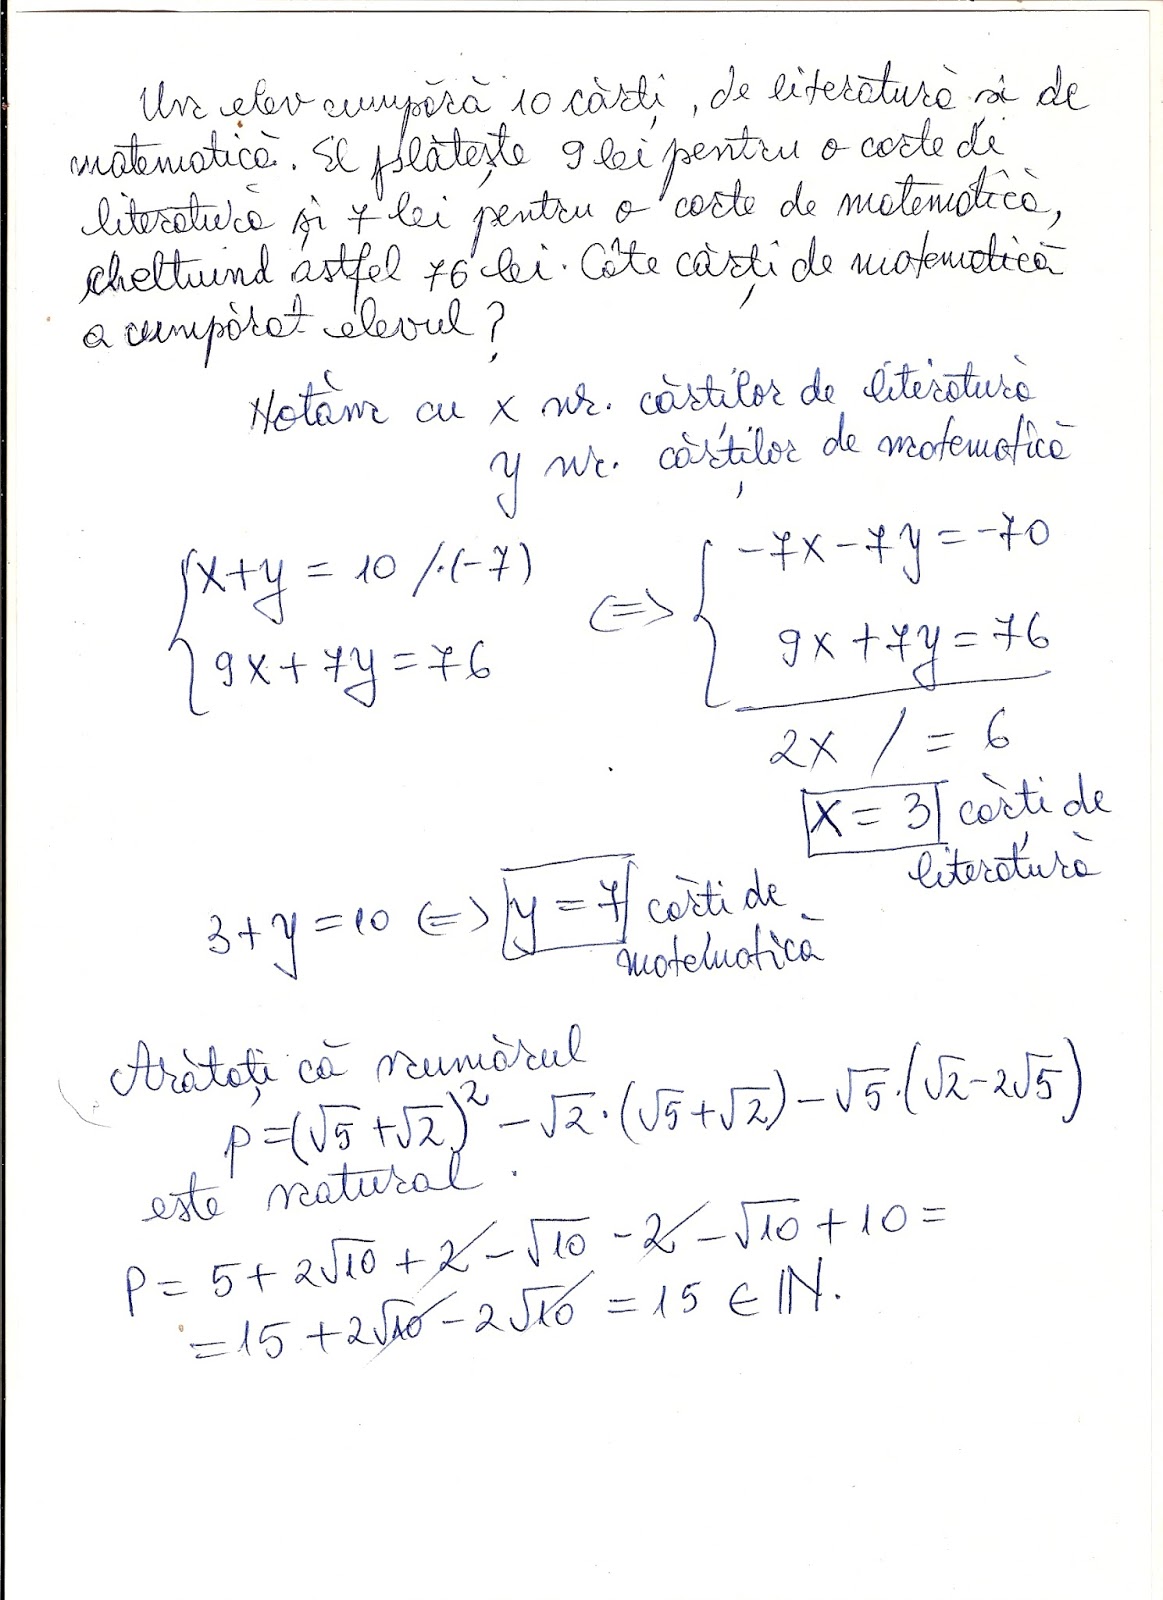 Un elev cumpără 10 cărți, de literatură și de
matematică. El plătește 9 lei pentru o carte de
literatură și 7 lei pentru o carte de matematică,
cheltuind astfel 76 lei. Câte cărți de matematică
a cumpărat elevul?
Notăm cu x nr. cărților de literatură
y nr. cărților de matematică
{x+y = 10 /·(-7) <=> {-7x-7y = -70
9x+7y=76 9x+7y=76
2x / = 6
x = 3 cărți de
literatură
3+y=10 <=> y=7 cărți de
matematică
Arătați că numărul
p=(√5+√2)² - √2·(√5+√2) - √5·(√2-2√5)
este natural.
P= 5+2√10+2-√10-2-√10+10=
=15+2√10-2√10=15 ∈ ℕ.